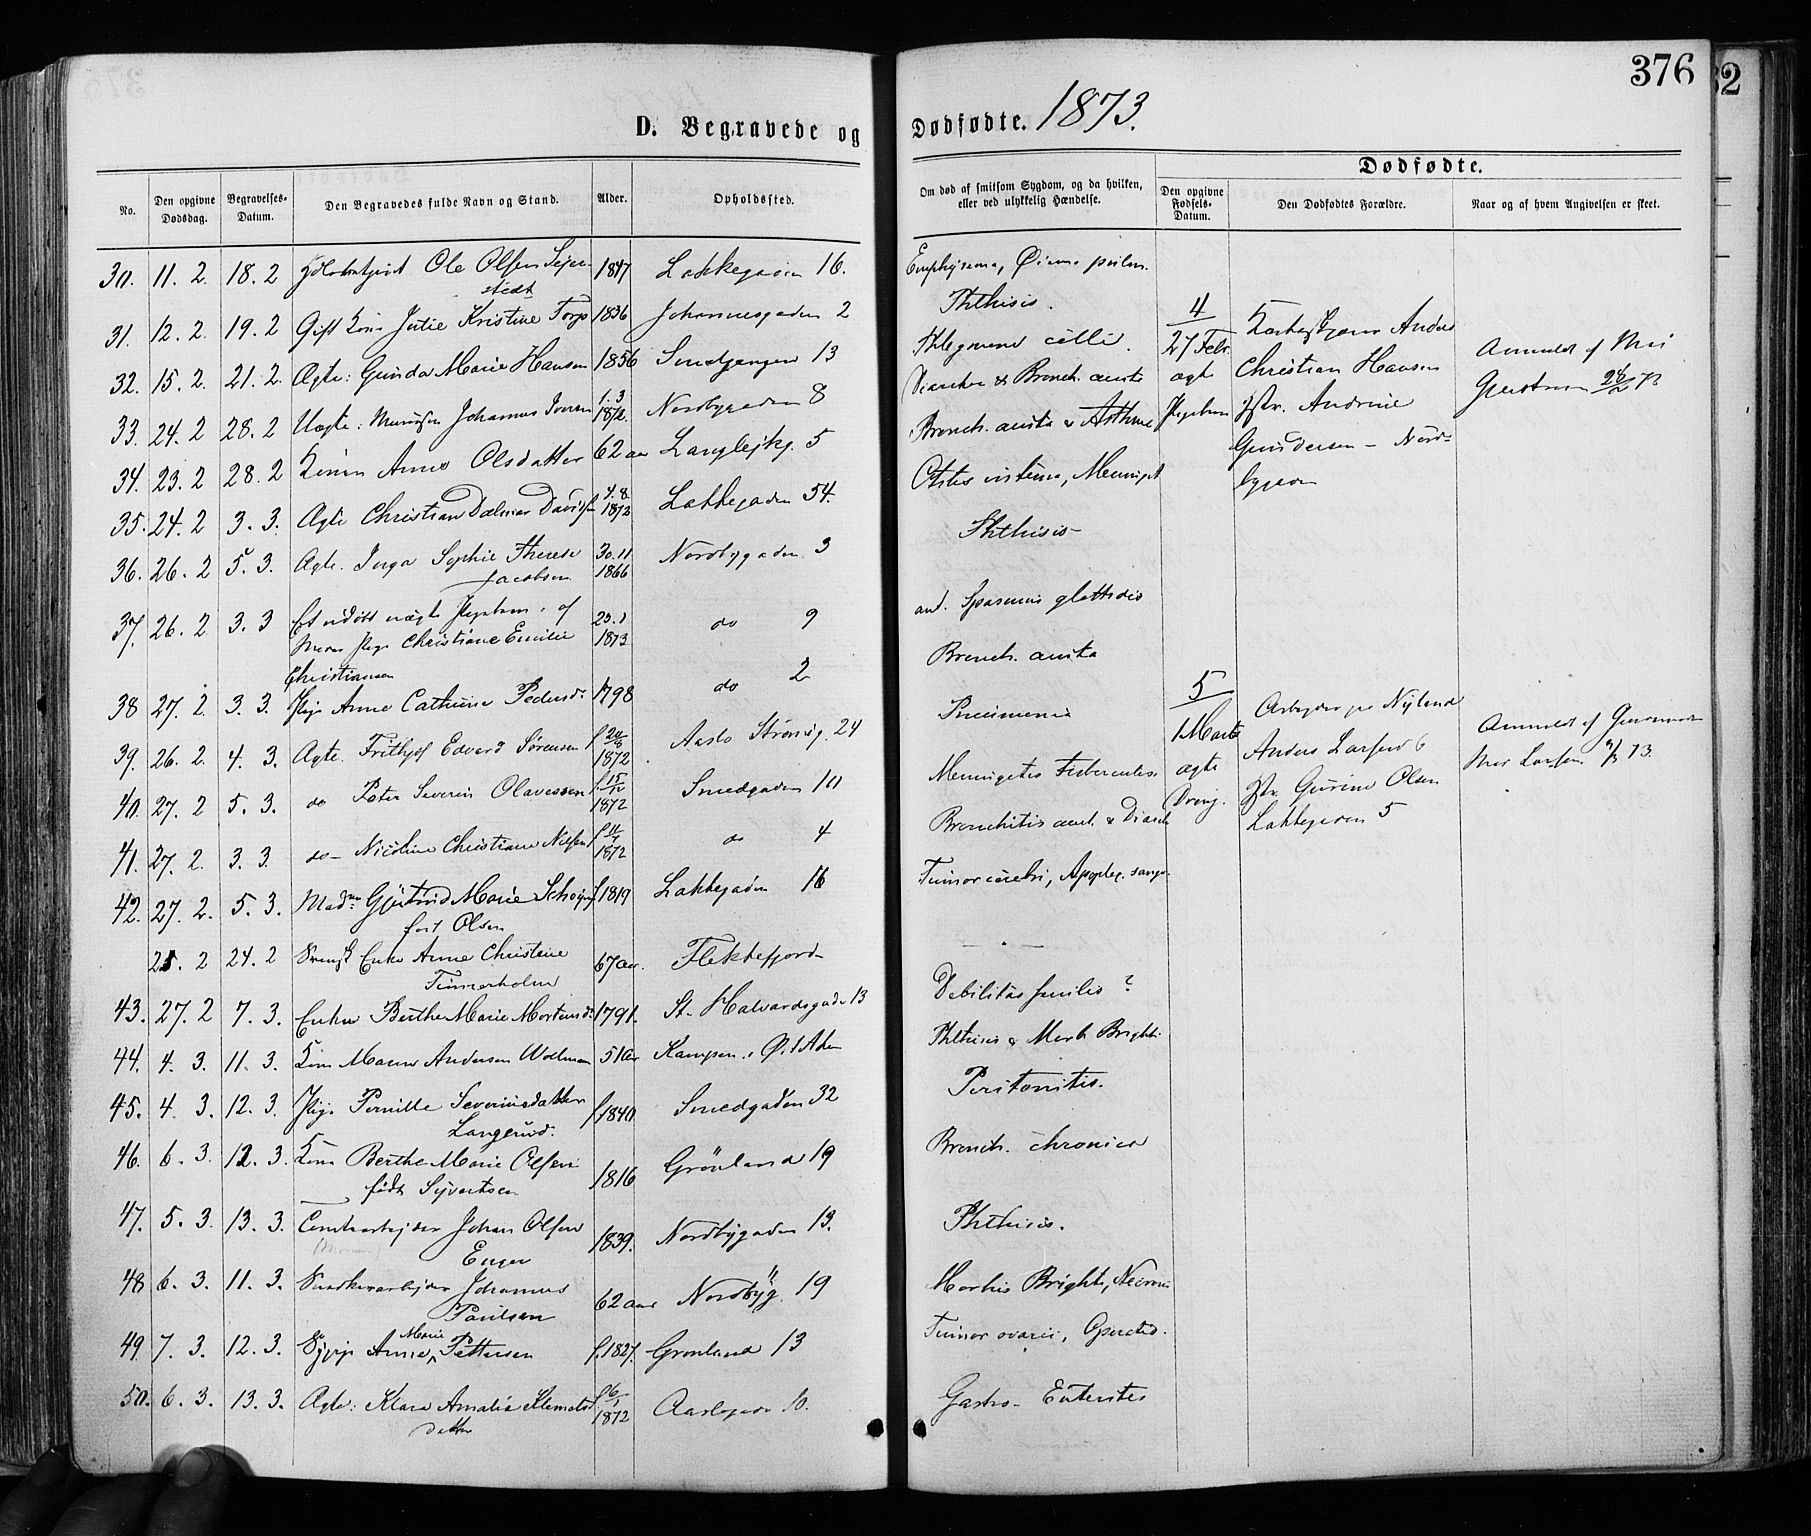 376
32
D. Begravede og Dødfødte. 1873.
Dødfødte.
No. Den opgivne Dødsdag. Begravelses-Datum. Den Begravedes fulde Navn og Stand. Alder. Opholdssted. Om død af smitsom Sygdom, og da hvilken, eller ved ulykkelig Hændelse. Den opgivne Fødsels-Datum. Den Dødfødtes Forældre. Naar og af hvem Angivelsen er skeet.
30. 11. 2. 18. 2 Ole Olsen 1847 Lakkegaden 16. Emphysema,
31. 12. 2. 19. 2 Gift Kone Julie Kristine Torp 1836 Johannesgaden 2 Phthisis.
32. 15. 2. 21. 2. Ægte: Gunda Marie Hansen 1856 Smedgangen 13 Phlegmone colli.
33. 24. 2 28. 2 Uægte: Johannes Iversen 1. 3 1872. Nordbygaden 8 & Bronch. acuta
34. 23. 2 28. 2 Konen Anne Olsdatter 62 aar Langleikg. 5 Bronch. acuta & Asthma
35. 24. 2 3. 3. Ægte Christian 4. 8. 1872 Lakkegaden 54. Otitis interna, Meningit
36. 26. 2 5. 3. Ægte. Inga Sophie Therese
Jacobsen 30. 11 1866 Nordbygaden 3 Phthisis
37. 26. 2 3. 3 Et udøbt uægte Pigebarn af
Pige Christiane Emilie
Christiansen 1873 do 9 Spasmus glottidis
38 27. 2. 3. 3. Pige Anne Cathrine Pedersd. 1798 do 2 Bronch. acuta
39. 26. 2 4. 3. Ægte. Frithjof Edvard Sørensen f. 1872 Aaslo Strømsv. 24 Pneumonia
40. 27. 2 5. 3. do Peter Severin Olavessen f. 15/12 1872 Smedgaden 10 Meningitis Tuberculos.
41. 27. 2. 3. 3. do Nicoline Christiane Nilsen f. 1872 do 4 Bronchitis acut. &
42. 27. 2. 5. 3. Mad. Gjertrud Marie
født Olsen f. 1819 Lakkegaden 16 Tumor cerebri, Apoplex. sangv.
25. 2 24. 2 Svensk Enke Anne Christine
Timmerholm 67 aar. Flekkefjord
43. 27. 2 7. 3. Enke Berthe Marie Mortensd. 1791. St. Halvardsgade 13 Debilitas senilis?
44. 4. 3. 11. 3. Andersen 51 aar Kampen. Ø. Aker Phthisis & Morb. Brighti.
45. 4. 3. 12. 3. Pige Pernille Severinsdatter
Langerud. f. 1840 Smedgaden 32 Peritonitis.
46. 6. 3. 12. 3. Kone Berthe Marie Olsen
født Syvertsen 1816 Grönland 19 Bronch. chronica
47. 5. 3. 13. 3. Johan Olsen
Enger 1839. Nordbygaden 13. Phthisis.
48 6. 3. 11. 3. Johannes
Paulsen 62 aar Nordbyg. 19 Morbus Brighti,
49. 7. 3. 12. 3. Sypige Anne Marie Pettersen f. 1827. Grönland 13 Tumor ovarii, Operated.
50. 6. 3. 13. 3. Ægte: Klara Amalia Klemets
datter f. 6/1 1872 Aaslogade 10. Gastro-Enterites
4
27 Febr.
ægte
Pigebarn
Anders
Christian Hansen
Hstr. Andrine
Gundersen – Nord-
bygaden
Anmeldt af
5
1 Marts
ægte
Dreng.
Arbejder paa Nyland
Anders Larsen &
Hstr. Gurine Olsen
Lakkegaden 5
Anmeldt af
Larsen 73.